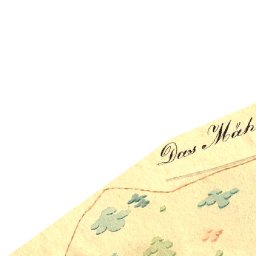 Das Mäh